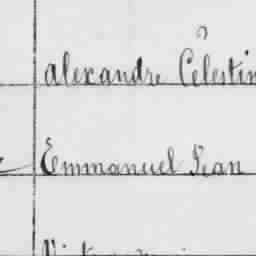 Alexandre Célestin
Emmanuel Jean